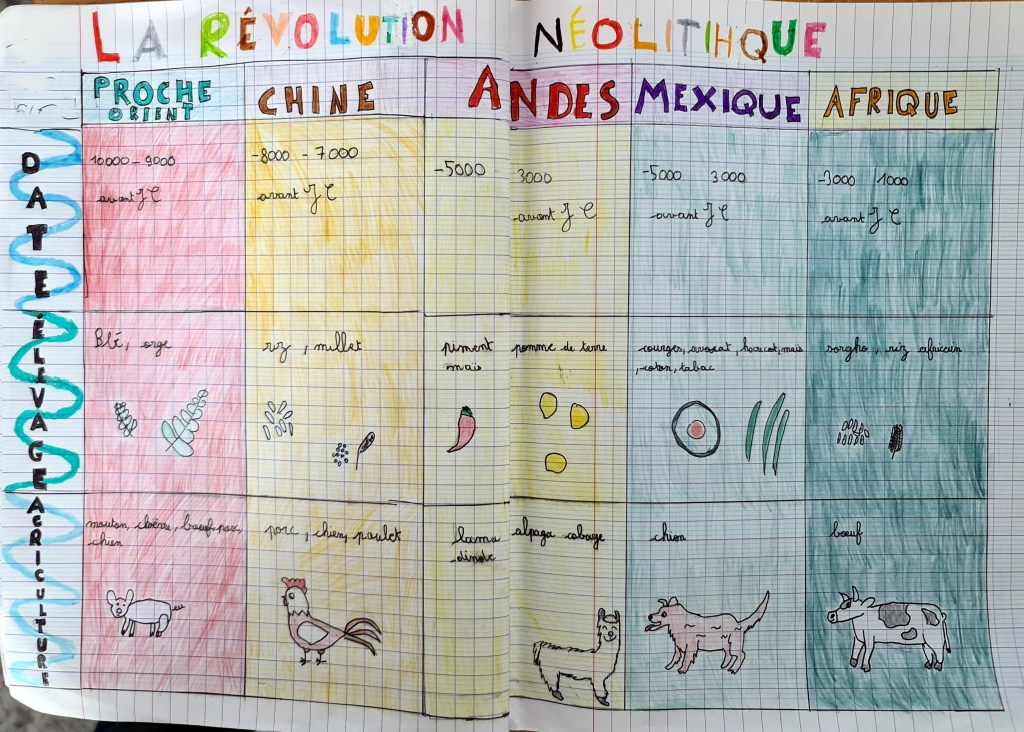 LA RÉVOLUTION NÉOLITIHQUE
PROCHE
ORIENT
CHINE
ANDES
MEXIQUE
AFRIQUE
DATE
10000 - 9000
avant JC
-8000 - 7000
avant JC
-5000 3000
avant JC
-5000 3000
avant JC
-3000 1000
avant JC
ÉLEVAGE
Blé, orge
riz, millet
piment
mais
pomme de terre
courges, avocat, haricot, mais
, coton, tabac
sorgho, riz africain
AGRICULTURE
mouton, chèvre, bœuf, porc,
chien
porc, chien, poulet
lama
dinde
alpaga cobaye
chien
bœuf